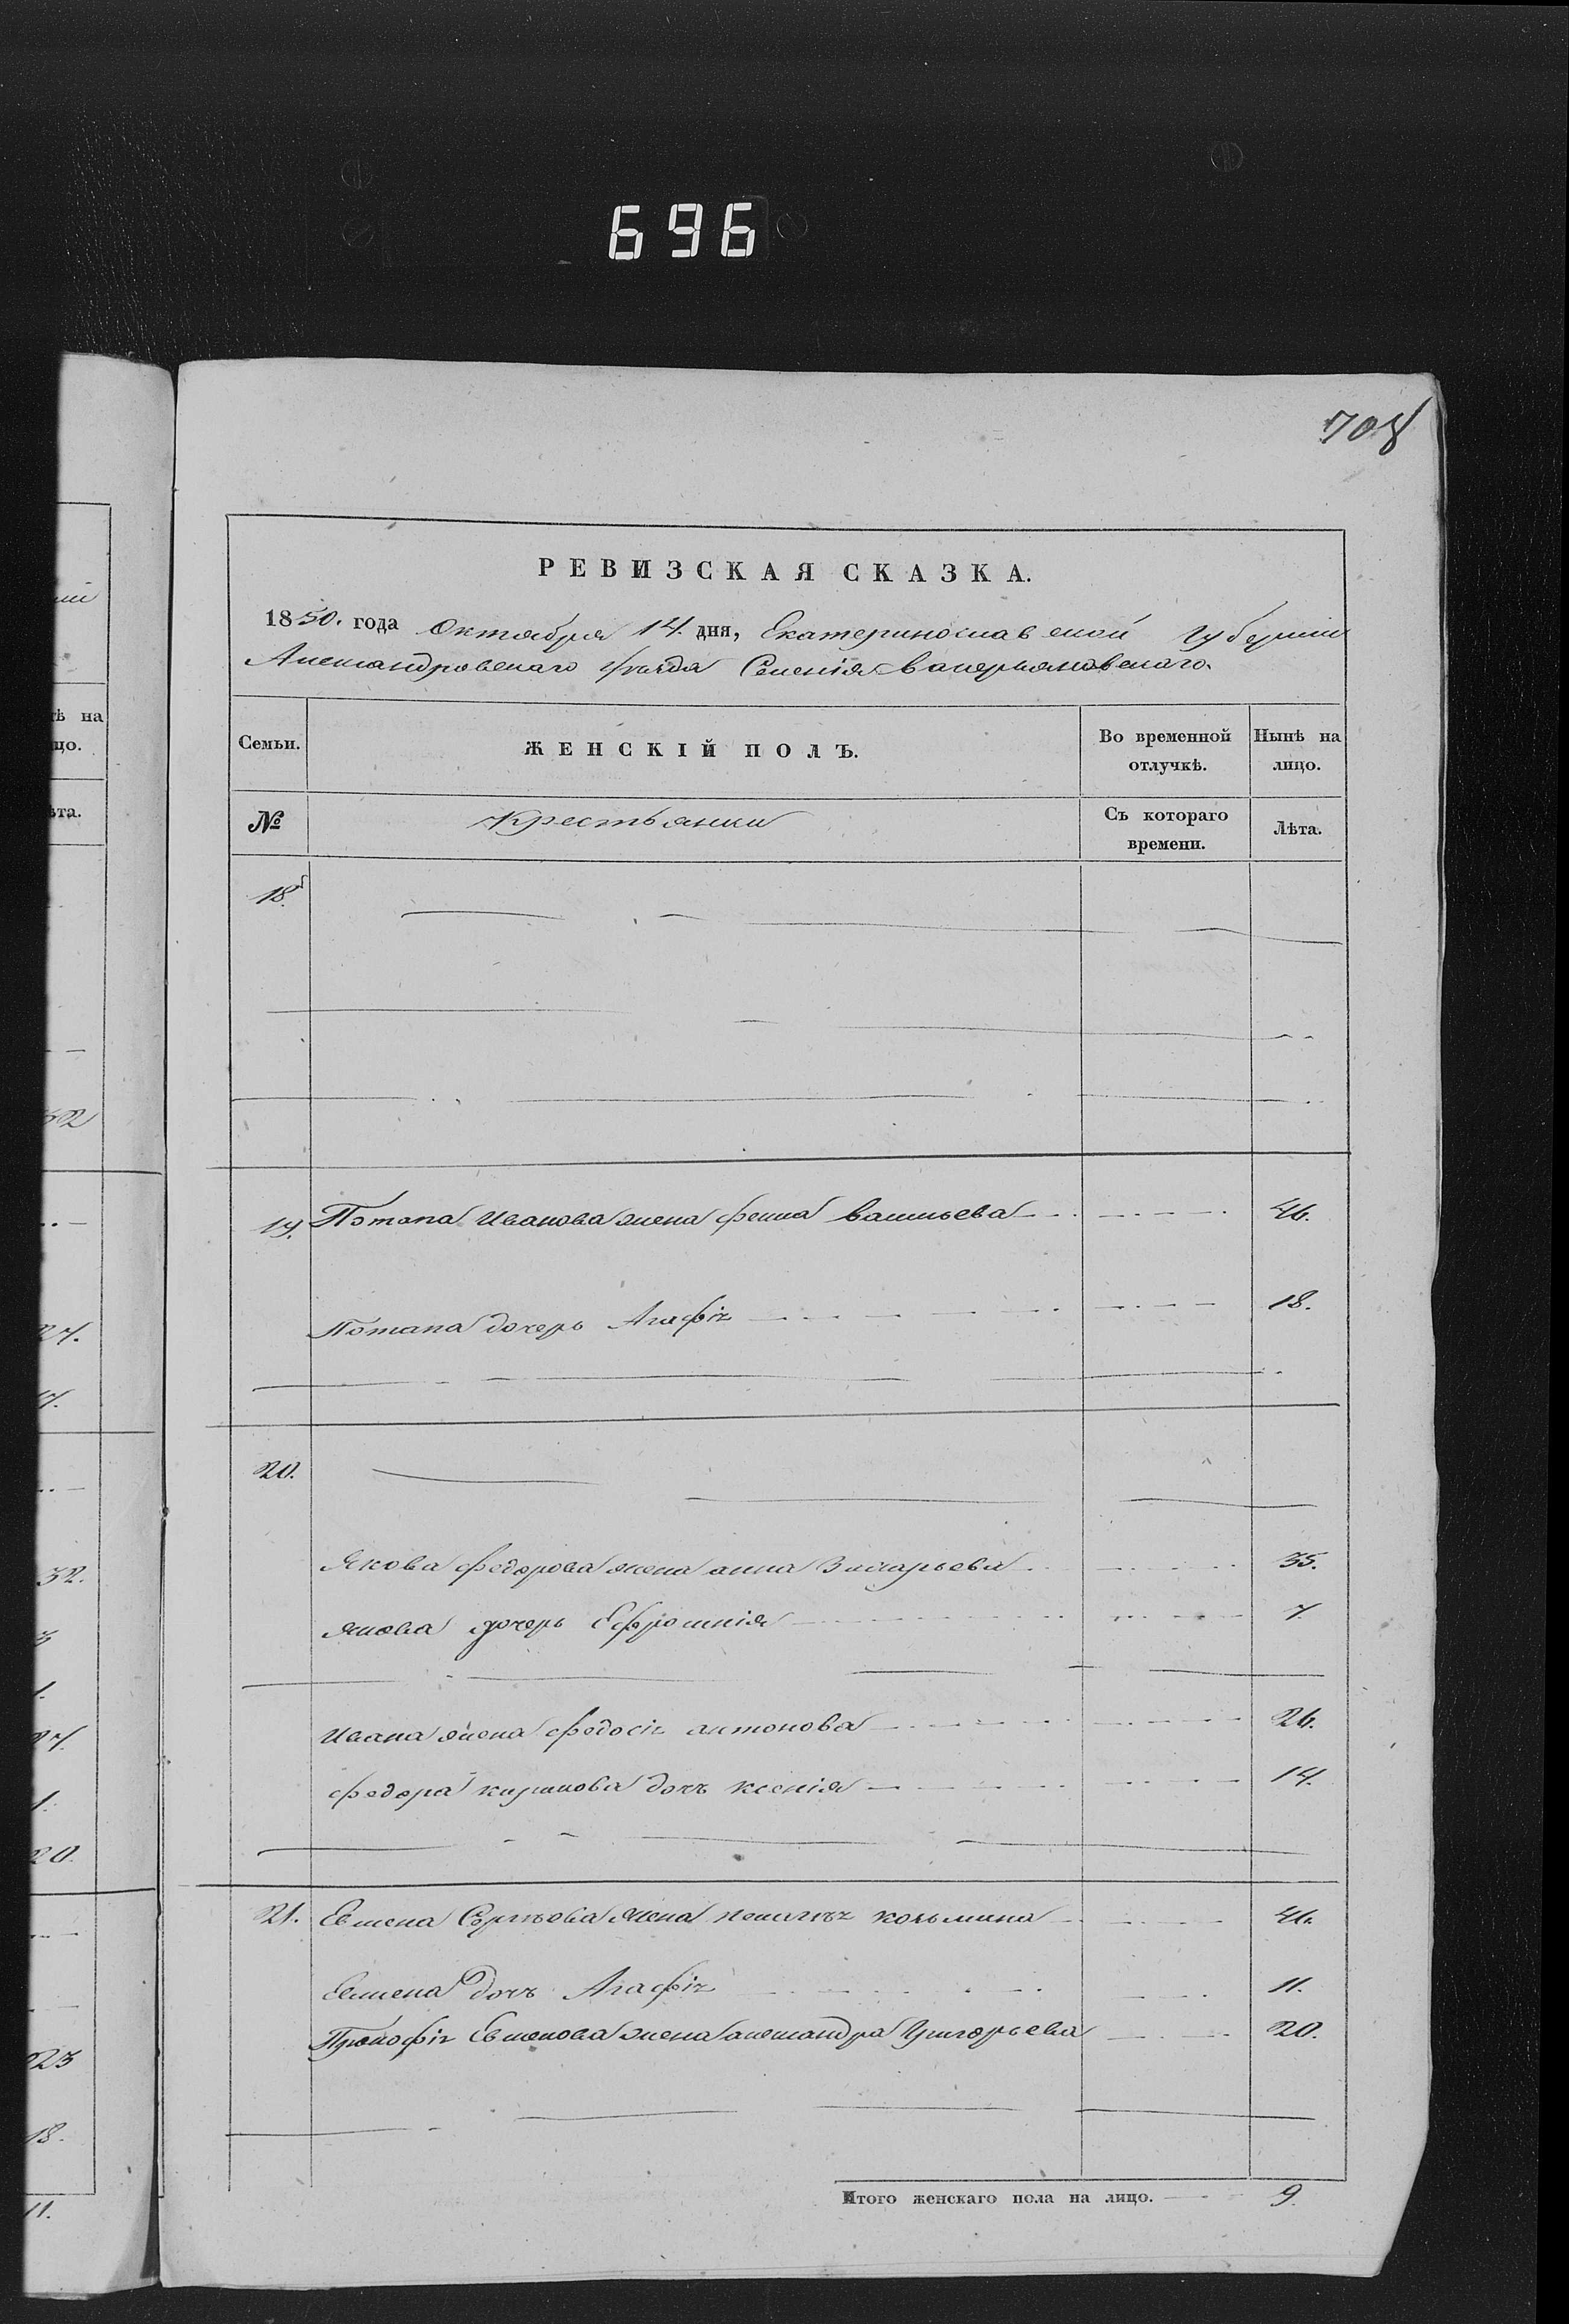 696
708
РЕВИЗСКАЯ СКАЗКА.
1850. года Октября 14. дня, Екатеринославской Губернии
Александровскаго уѣзда Селенія Валерьяновскаго.
Семьи.
ЖЕНСКІЙ ПОЛЪ.
Во временной отлучкѣ.
Нынѣ на лицо.
№
Крестьянки
Съ котораго времени.
Лѣта.
18.
19. Потапа Иванова жена фекла васильева 46.
Потапа дочерь Агафія 18.
20.
Якова федорова жена анна Захарьева 35.
Якова дочерь Ефросинія 7
Ивана жена федосія антонова 26.
федора дочь ксенія 14.
21. Евсева жена козьмина 46.
дочь Агафія 11.
Прокофія жена александра Григорьева 20.
Итого женскаго пола на лицо. 9.
ѣ на
цо.
ѣта.
32
27.
17.
32.
3
1.
27.
1.
20.
23
18.
11.